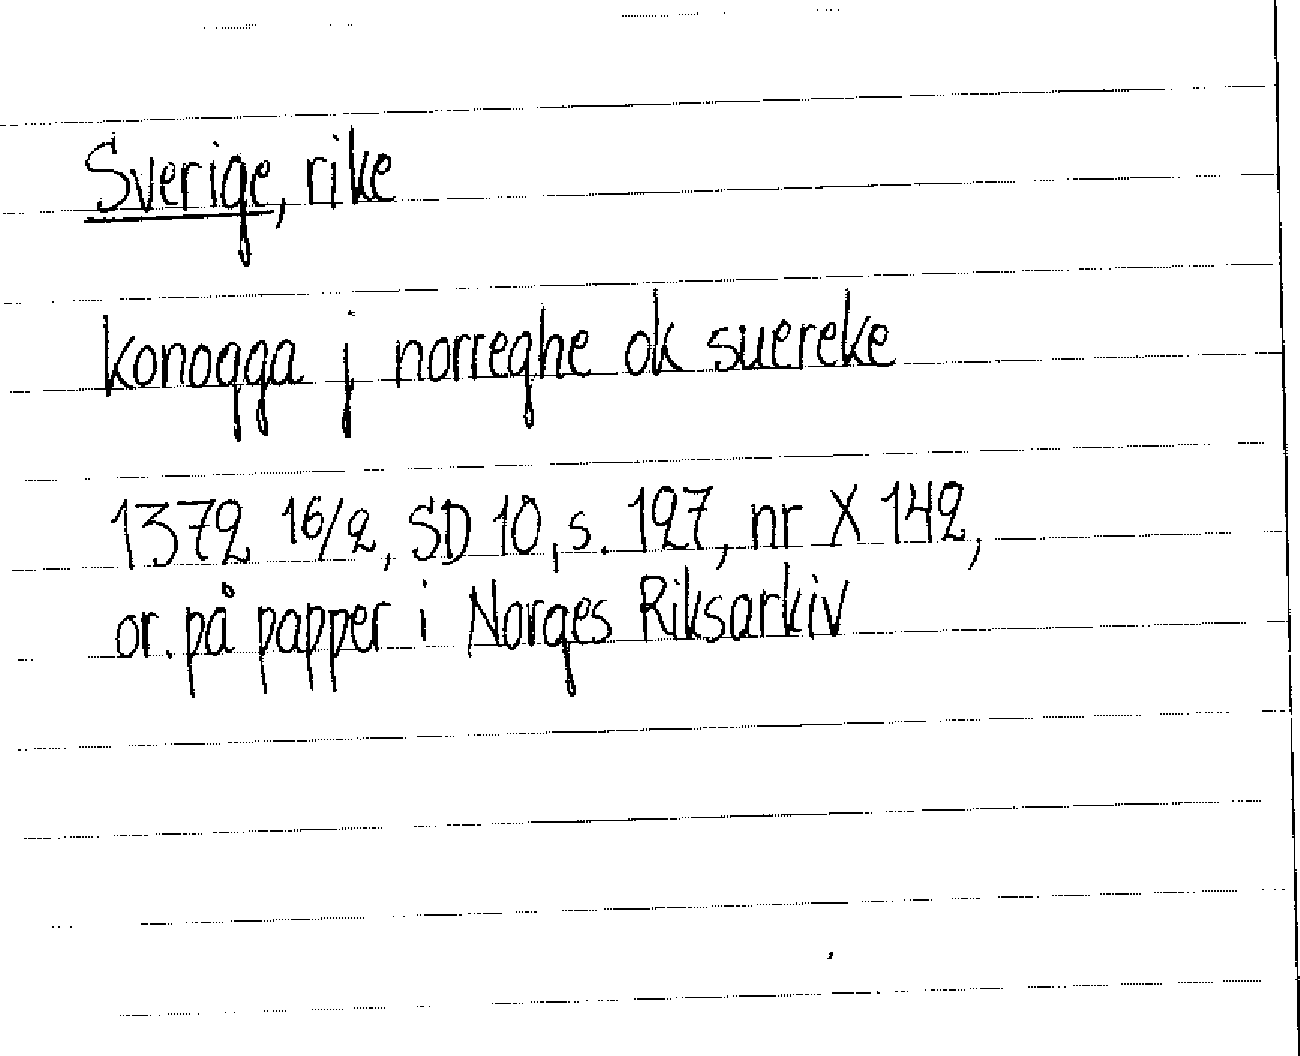 Sverige, rike
konogga j norreghe ok suereke
1372 16/2, SD 10, s. 127, nr X 142,
or. på papper i Norges Riksarkiv